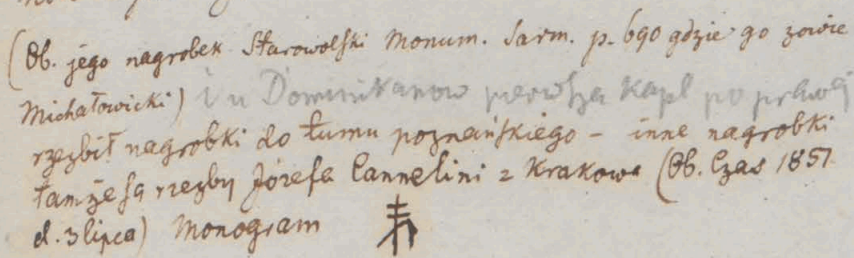 (Ob. jego nagrobek Starowolski Monum. Sarm. p. 690 gdzie go zowie
Michałowicki) i u Dominikanow pierwsza Kapl po prawej
rzezbił nagrobki do tumu poznańskiego – inne nagrobki
tamże są rzezby Józefa Cannelini z Krakowa (Ob. Czas 1857
d. 3 lipca) Monogram